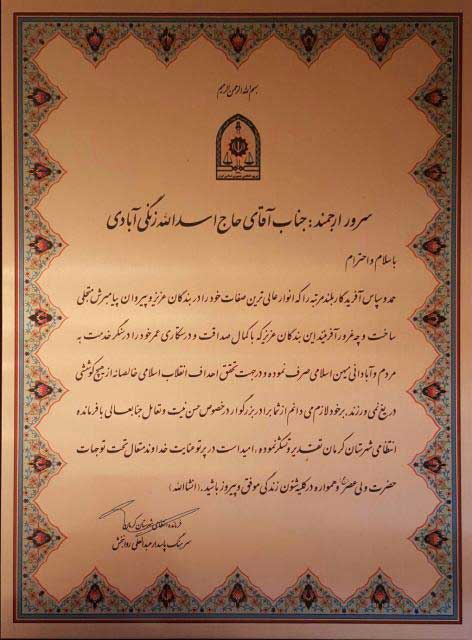 بسم الله الرحمن الرحیم
سرور ارجمند: جناب آقای حاج اسدالله زنگی آبادی
باسلام و احترام
حمد و سپاس آفریدگار بلند مرتبه را که انوار عالی ترین صفات خود را در بندگان عزیز و پیروان پیامبرش متجلی
ساخت و چه غرور آفرینند این بندگان عزیز که با کمال صداقت و درستکاری عمر خود را در سنگر خدمت به
مردم و آبادانی میهن اسلامی صرف نموده و در جهت تحقق اهداف انقلاب اسلامی خالصانه از هیچ کوششی
دریغ نمی ورزند. بر خود لازم می دانم از شما برادر بزرگوار در خصوص حسن نیت و تعامل جنابعالی با فرمانده
انتظامی شهرستان کرمان تقدیر و تشکر نموده، امید است در پرتو عنایت خداوند متعال تحت توجهات
حضرت ولی عصر (عج) و همواره در کلیه شئون زندگی موفق و پیروز باشید. (انشاالله)
فرمانده انتظامی شهرستان کرمان
سرهنگ پاسدار عبدالعلی روانبخش